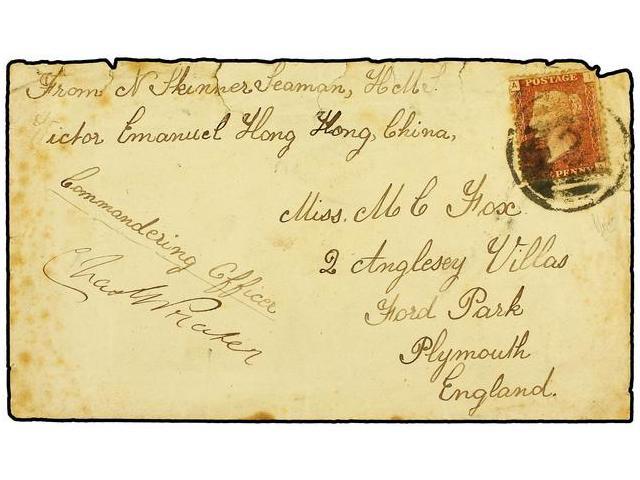 From N Skinner Seaman, H.M.S.
Victor Emanuel Hong Hong, China,
A
POSTAGE
PENNY
Miss. M C Fox
2 Anglesey Villas
Ford Park
Plymouth
England.
Commandering Officer